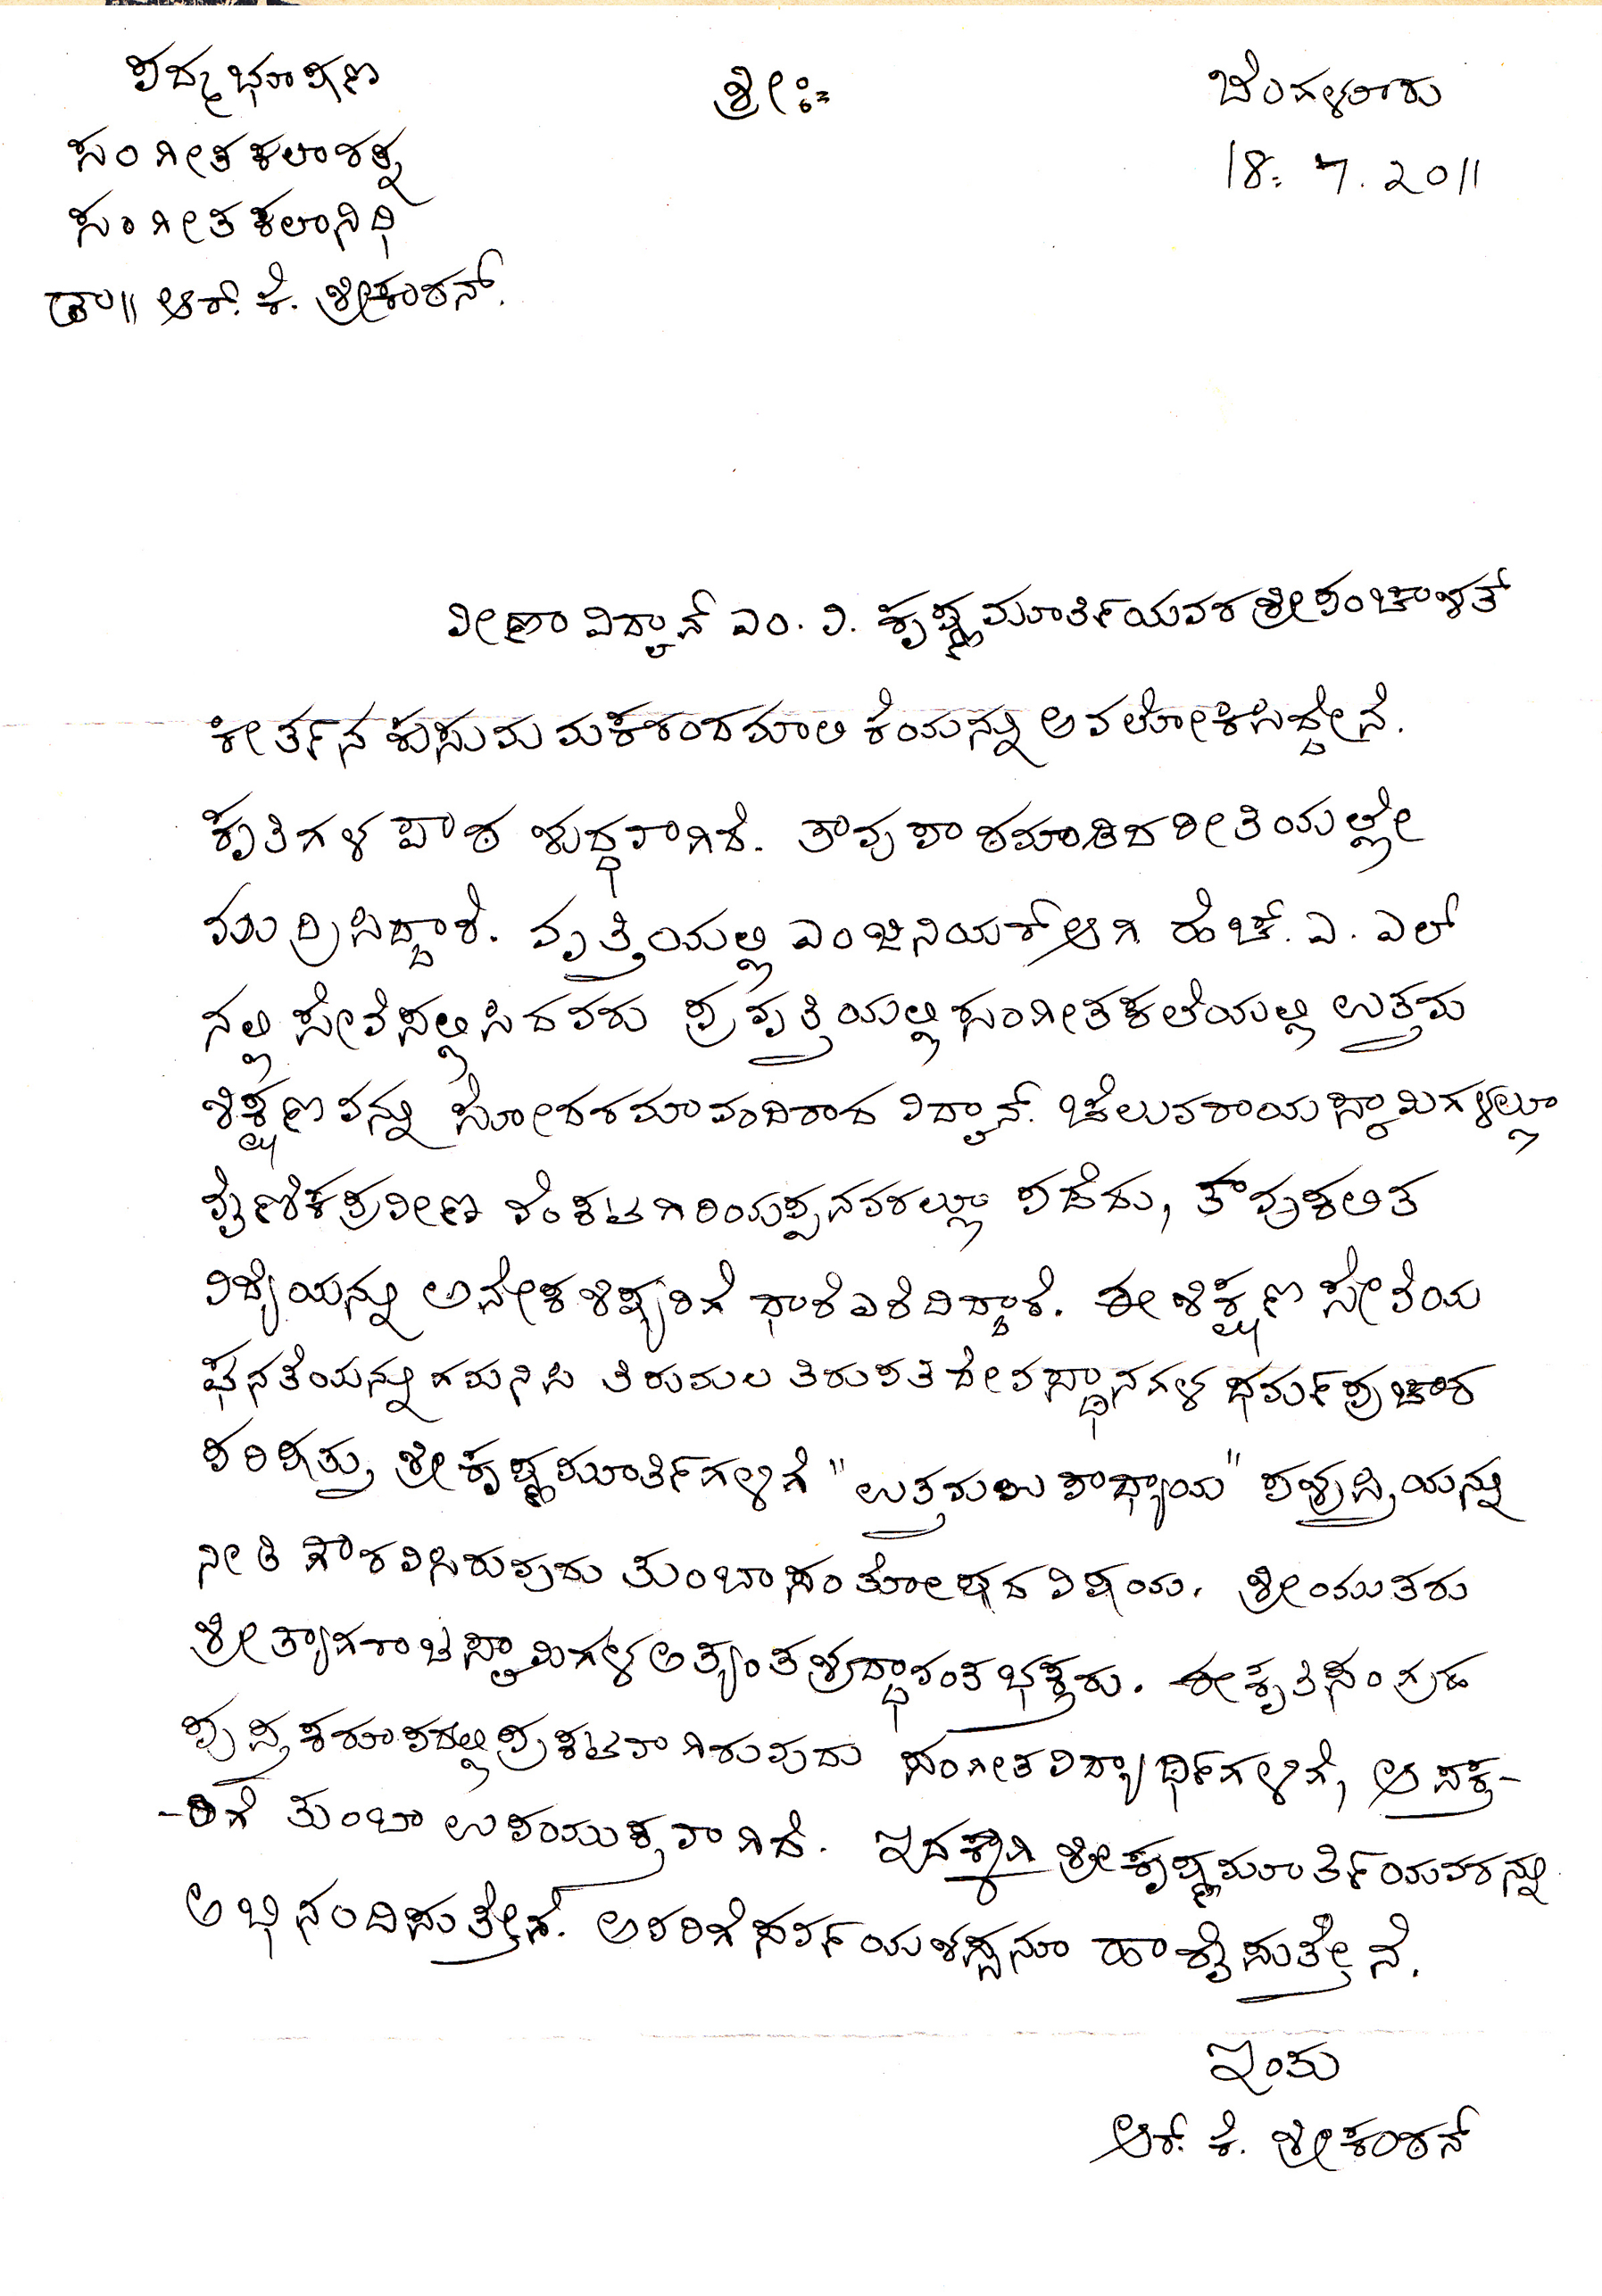 ಪದ್ಮಭೂಷಣ
ಸಂಗೀತಕಲಾರತ್ನ
ಸಂಗೀತಕಲಾನಿಧಿ
ಡಾ|| ಆರ್. ಕೆ. ಶ್ರೀಕಂಠನ್.
ಶ್ರೀಃ
ಬೆಂಗಳೂರು
18. 7. 2011
ವೀಣಾ ವಿದ್ವಾನ್ ಎಂ. ವಿ. ಕೃಷ್ಣಮೂರ್ತಿಯವರ ಶ್ರೀಪಂಚಾಶತ್
ಕೀರ್ತನ ಕುಸುಮ ಮಕರಂದಮಾಲಿಕೆಯನ್ನು ಅವಲೋಕಿಸಿದ್ದೇನೆ.
ಕೃತಿಗಳ ಪಾಠ ಶುದ್ಧವಾಗಿದೆ. ತಾವು ಪಾಠಮಾಡಿದ ರೀತಿಯಲ್ಲೇ
ಮುದ್ರಿಸಿದ್ದಾರೆ. ವೃತ್ತಿಯಲ್ಲಿ ಎಂಜಿನಿಯರ್ ಆಗಿ ಹೆಚ್. ಎ. ಎಲ್
ನಲ್ಲಿ ಸೇವೆಸಲ್ಲಿಸಿದವರು ಪ್ರವೃತ್ತಿಯಲ್ಲಿ ಸಂಗೀತಕಲೆಯಲ್ಲಿ ಉತ್ತಮ
ಶಿಕ್ಷಣವನ್ನು ಸೋದರಮಾವಂದಿರಾದ ವಿದ್ವಾನ್. ಚೆಲುವರಾಯಸ್ವಾಮಿಗಳಲ್ಲೂ
ವೈಣಿಕಪ್ರವೀಣ ವೆಂಕಟಗಿರಿಯಪ್ಪನವರಲ್ಲೂ ಪಡೆದು, ತಾವು ಕಲಿತ
ವಿದ್ಯೆಯನ್ನು ಅನೇಕ ಶಿಷ್ಯರಿಗೆ ಧಾರೆ ಎರೆದಿದ್ದಾರೆ. ಈ ಶಿಕ್ಷಣ ಸೇವೆಯ
ಘನತೆಯನ್ನು ಗಮನಿಸಿ ತಿರುಮಲ ತಿರುಪತಿ ದೇವಸ್ಥಾನಗಳ ಧರ್ಮಪ್ರಚಾರ
ಪರಿಷತ್ತು ಶ್ರೀಕೃಷ್ಣಮೂರ್ತಿಗಳಿಗೆ "ಉತ್ತಮಉಪಾಧ್ಯಾಯ" ಪ್ರಶಸ್ತಿಯನ್ನು
ನೀಡಿ ಗೌರವಿಸಿರುವುದು ತುಂಬಾ ಸಂತೋಷದ ವಿಷಯ. ಶ್ರೀಯುತರು
ಶ್ರೀತ್ಯಾಗರಾಜಸ್ವಾಮಿಗಳ ಅತ್ಯಂತ ಶ್ರದ್ಧಾವಂತ ಭಕ್ತರು. ಈ ಕೃತಿಸಂಗ್ರಹ
ಪುಸ್ತಕರೂಪದಲ್ಲಿ ಪ್ರಕಟವಾಗಿರುವುದು ಸಂಗೀತವಿದ್ಯಾರ್ಥಿಗಳಿಗೆ, ಆಸಕ್ತ-
-ರಿಗೆ ತುಂಬಾ ಉಪಯುಕ್ತವಾಗಿದೆ. ಇದಕ್ಕಾಗಿ ಶ್ರೀಕೃಷ್ಣಮೂರ್ತಿಯವರನ್ನು
ಅಭಿನಂದಿಸುತ್ತೇನೆ. ಅವರಿಗೆ ಸರ್ವಯಶಸ್ಸನೂ ಹಾರೈಸುತ್ತೇನೆ.
ಇಂತು
ಆರ್. ಕೆ. ಶ್ರೀಕಂಠನ್